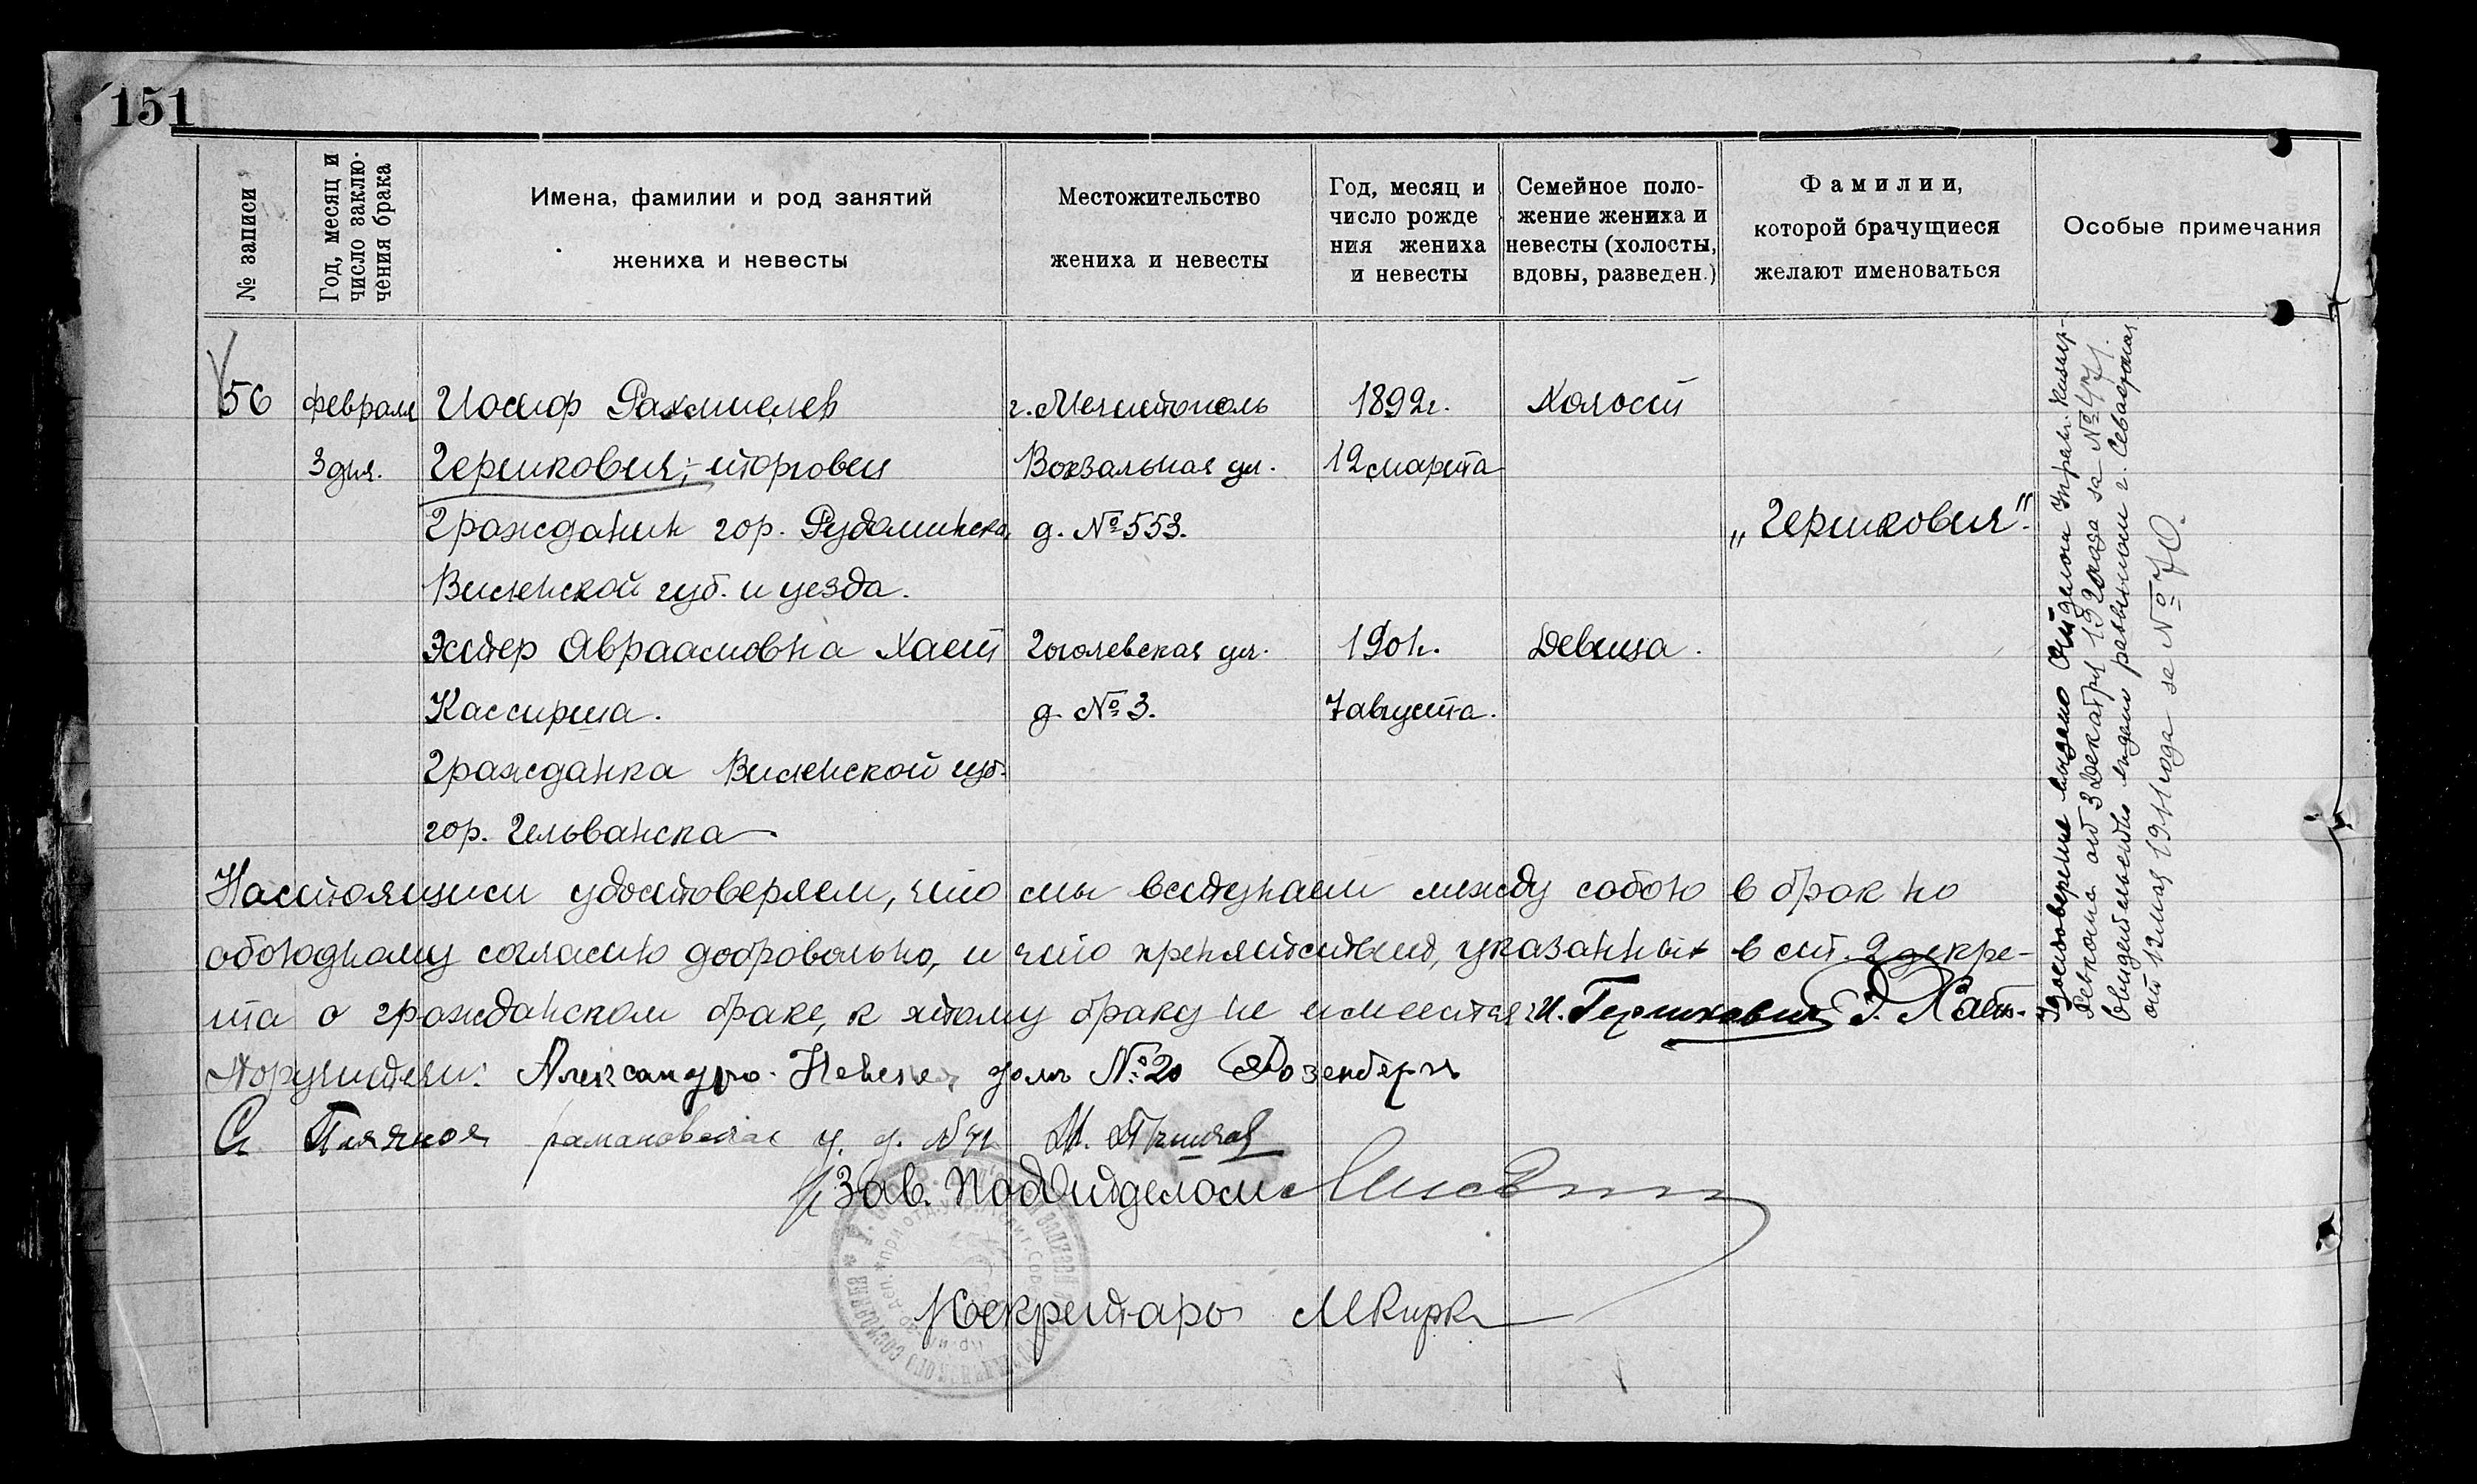 151
№ записи
Год, месяц и
число заклю-
чения брака
Имена, фамилии и род занятий
жениха и невесты
Местожительство
жениха и невесты
Год, месяц и
число рожде
ния жениха
и невесты
Семейное поло-
жение жениха и
невесты (холосты,
вдовы, разведен.)
Фамилии,
которой брачущиеся
желают именоваться
Особые примечания
56 февраля Иосиф Рахмиелев г. Мелитополь 1892г. Холост
3 дня. Гершкович, - торговец Вокзальная ул. 12 марта
Гражданин гор. Рудоминска, д. №553. „Гершкович".
Виленской губ. и уезда.
Эстер Авраамовна Хаит Гоголевская ул. 1901г. Девица.
Кассирша. д. №3. 7 августа.
Гражданка Виленской губ.
гор. Гельванска
Настоящим удостоверяем, что мы вступаем между собою в брак по
обоюдному согласию добровольно, и что препятствий, указанных в ст. 2 декре-
та о гражданском браке, к этому браку не имеется: И. Гершкович Э. Хаит.
Поручители: Александро-Невская дом №20 Розенберг
романовская у. д. М.
Зав. Подотделом
Секретарь МКирк
Удостоверение выдано Отделом Управл.
Ревкома от 3 Декабря 1920 года за №477.
Свидетельство выдано раввином г. Севастополя
от 12 мая 1911 года за №70.